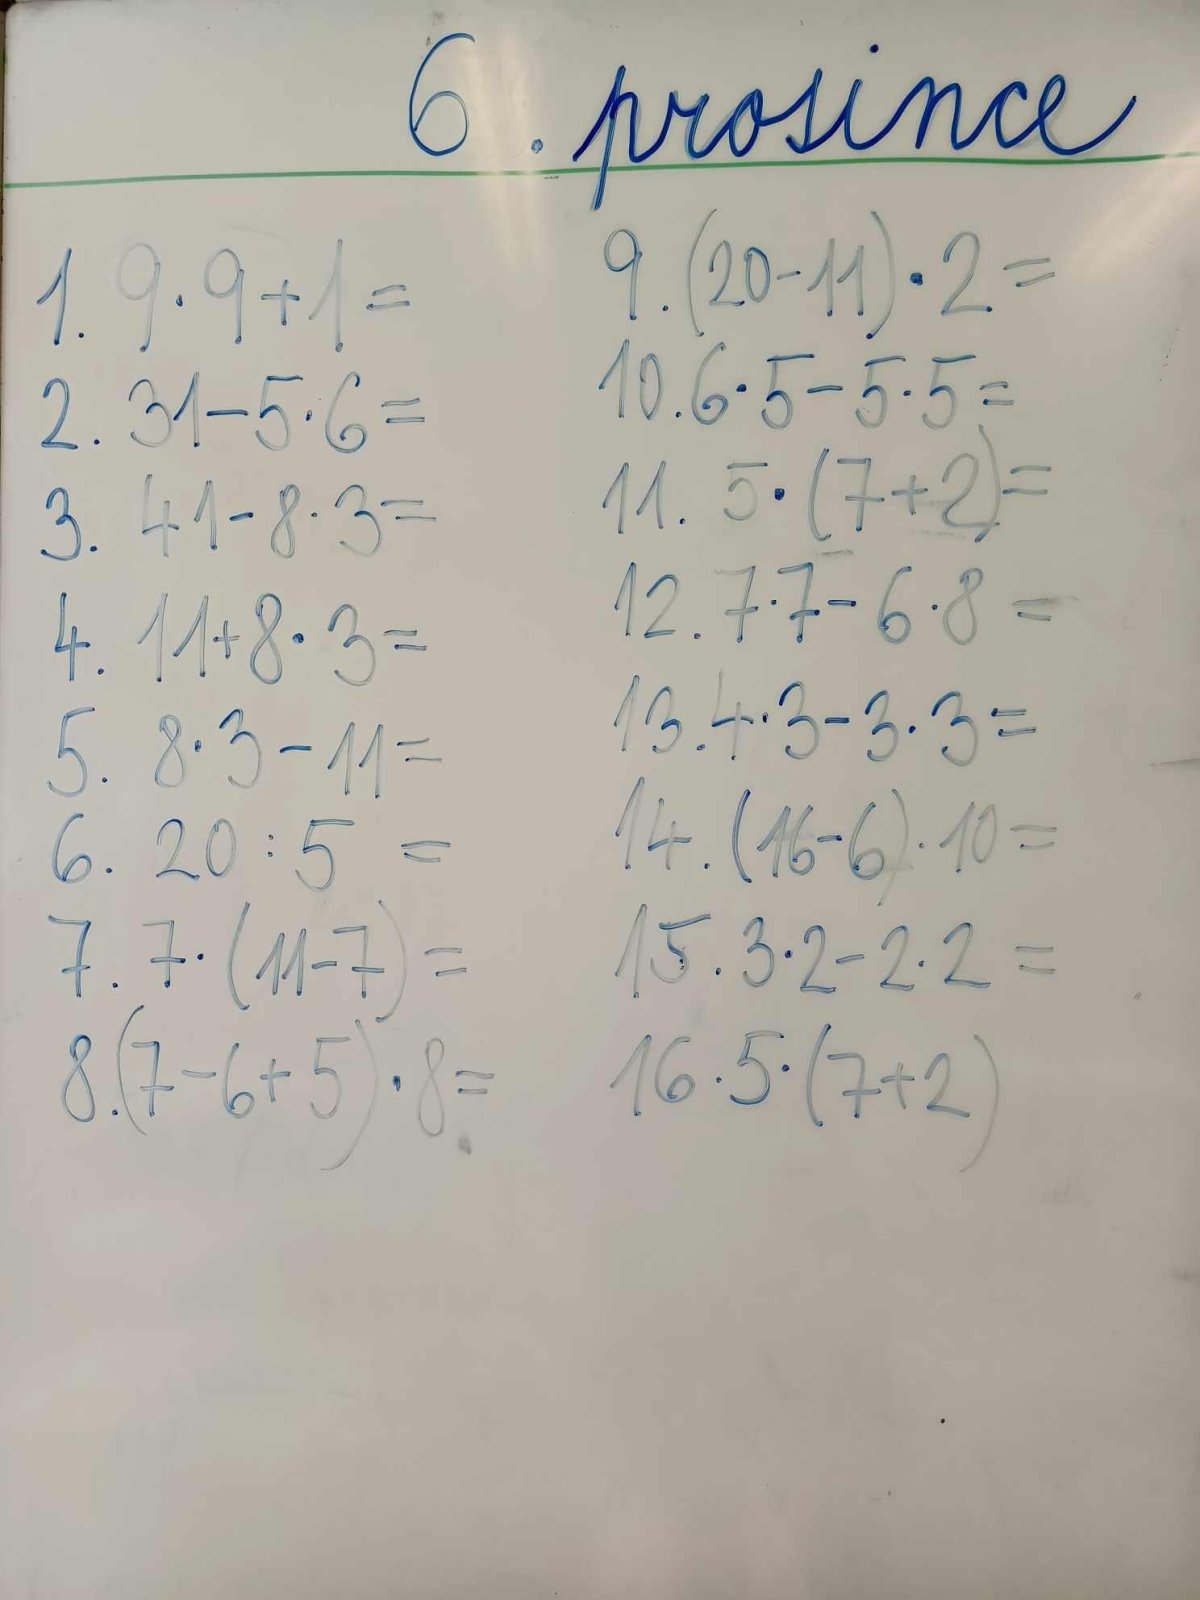 6. prosince
1. 9·9+1=
2. 31-5·6=
3. 41-8·3=
4. 11+8·3=
5. 8·3-11=
6. 20:5 =
7. 7·(11-7) =
8.(7-6+5)·8=
9.(20-11)·2=
10.6·5-5·5=
11. 5·(7+2)=
12. 7·7-6·8 =
13.4·3-3·3=
14. (16-6)·10=
15.3·2-2·2 =
16.5·(7+2)